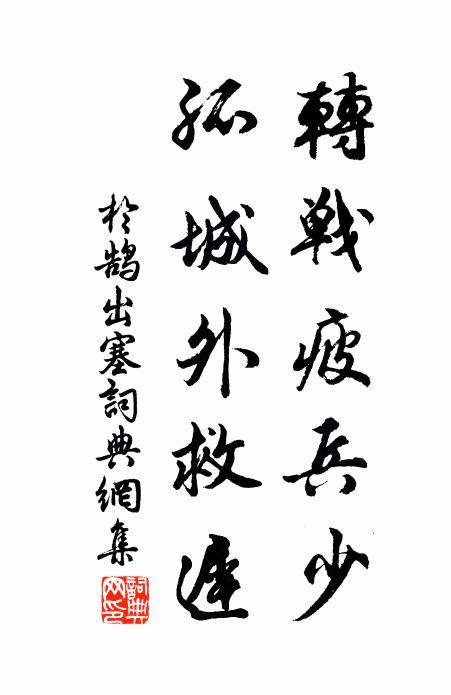 轉戰疲兵少
孤城外救遲
於鵠出塞詞典網集
詞典網印